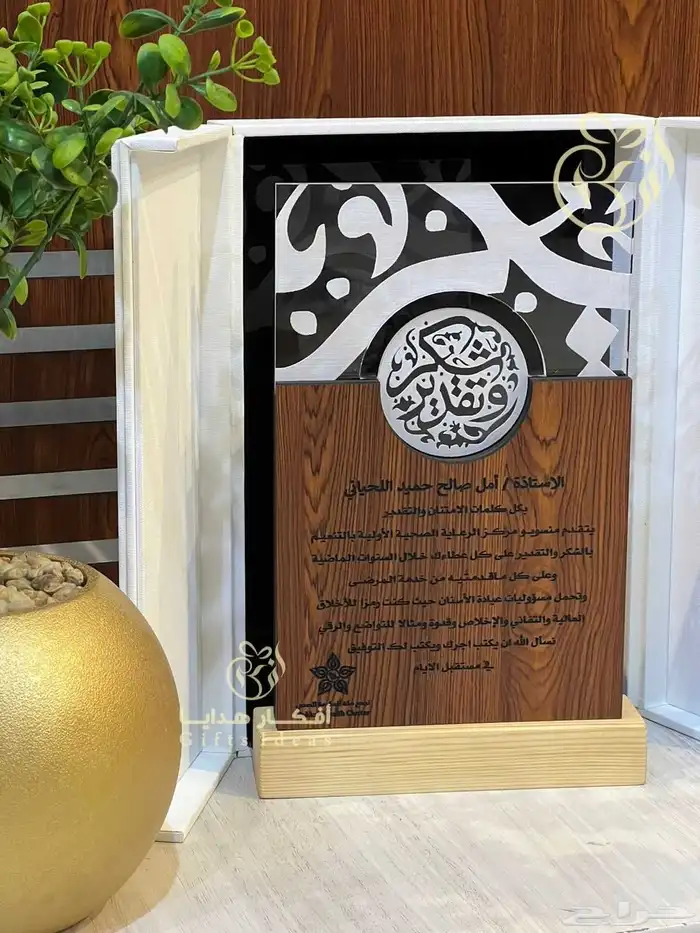 شكر وتقدير
الإستاذة / أمل صالح حميد اللحياني
بكل كلمات الامتنان والتقدير
يتقدم منسوبو مركز الرعاية الصحية الأولية بالتنعيم
بالشكر والتقدير على كل عطاءك خلال السنوات الماضية
وعلى كل ماقدمتيه من خدمة المرضى
وتحمل مسؤوليات عيادة الأسنان حيث كنت رمزا للأخلاق
العالية والتفاني والإخلاص وقدوة ومثالا للتواضع والرقي
نسأل الله ان يكتب اجرك ويكتب لك التوفيق
في مستقبل الايام
أفكار هدايا
Gifts Ideas
حراج